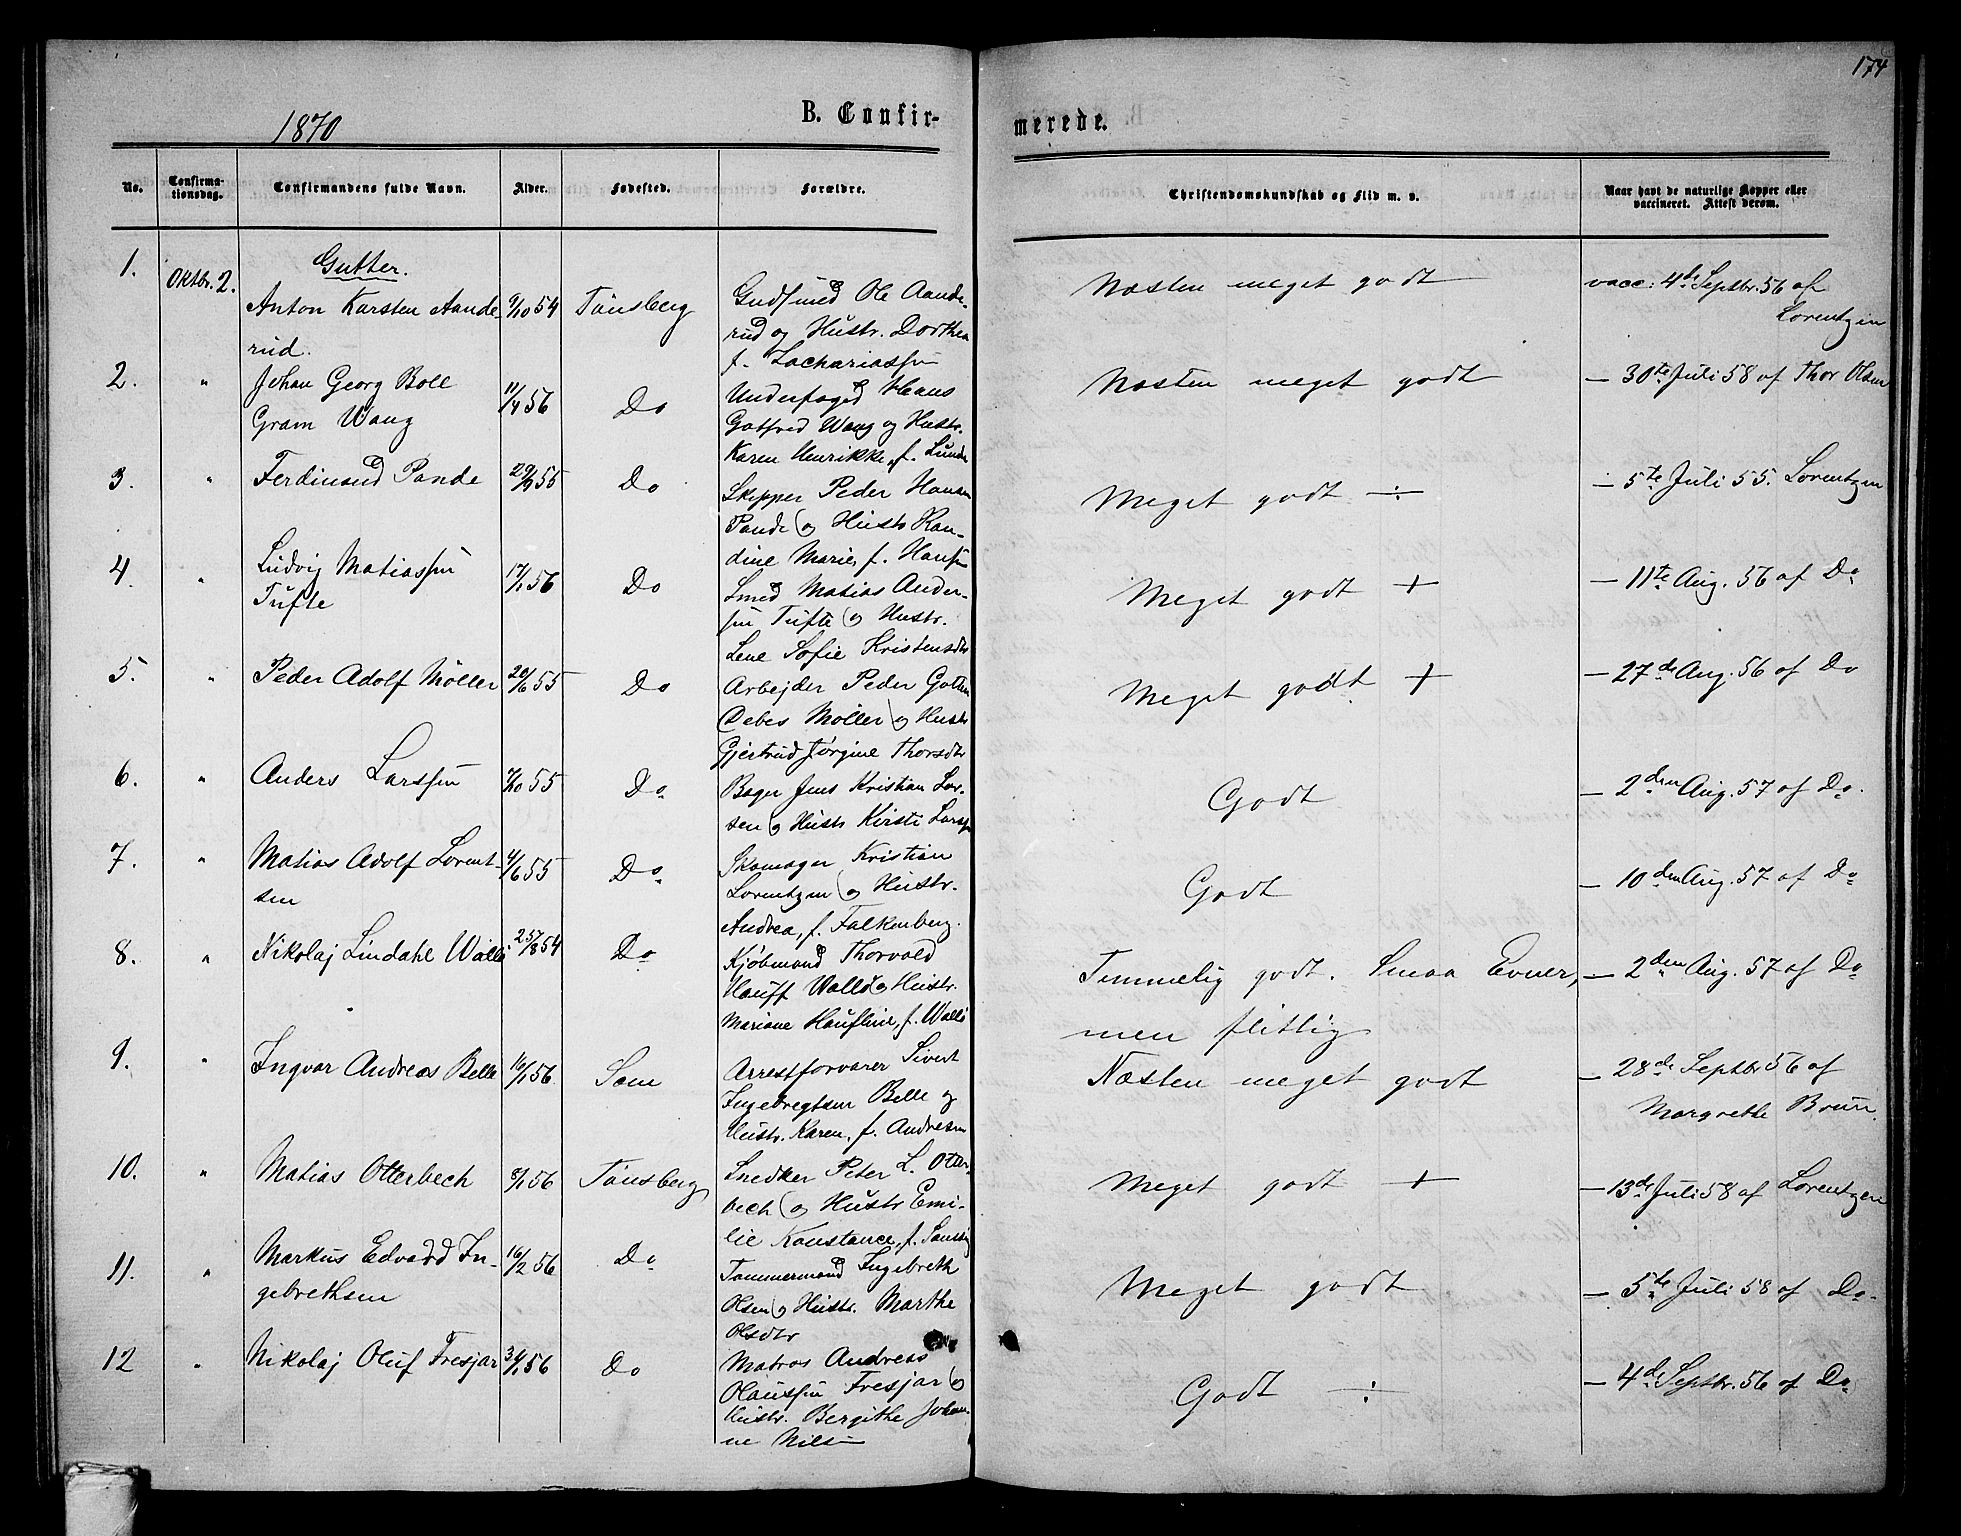 174
1870
B. Confir-
merede.
No.
Confirma-
tionsdag.
Confirmandens fulde Navn.
Alder.
Fødested.
Forældre.
Christendomskundskab og Flid m. v.
Naar havt de naturlige Kopper eller
vaccineret. Attest derom.
Gutter.
1. Oktbr. 2. Anton Karsten Aande-
rud. 9/10 54 Tønsberg
Gudsmed Ole Aande-
rud og Hustr. Dorthea
f. Zachariassen
Næsten meget godt
vacc: 4de Septbr. 56 af
Lorentzen
2. " Johan Georg Boll
Gram Wang 11/4 56 Do
Underfoged Hans
Gotfred Wang og Hustr.
Karen Henrikke, f. Lunde
Næsten meget godt
— 30te Juli 58 af Thor Olsen
3. " Ferdinand Pande 29/9 55 Do
Skipper Peder Hansen
Pande og Hustr Kan-
dine Marie, f. Hansen
Meget godt ÷
— 5te Juli 55. Lorentzen
4. " Ludvig Matiassen
Tufte 17/1 56 Do
Smed Matias Ander-
sen Tufte og Hustr.
Lene Sofie Kristensdtr
Meget godt +
— 11te Aug. 56 af Do
5. " Peder Adolf Møller 20/6 55 Do
Arbejder Peder Gotten
Debes Møller og Hustr
Gjertrud Jørgine Thorsdtr
Meget godt +
— 27de Aug. 56 af Do
6. " Anders Larssen 7/10 55 Do
Bager Jens Kristian Lar-
sen og Hustr Kirsti Larssen
Godt
— 2den Aug. 57 af Do.
7. " Matias Adolf Lorent-
sen 4/6 55 Do
Skomager Kristian
Lorentzen og Hustr.
Andrea, f. Falkenberg.
Godt
— 10den Aug. 57 af Do
8. " Nikolaj Lindahl Wallø 25/8 54 Do
Kjøbmand Thorvald
Hauff Wallø og Hustr.
Mariane Haufline, f. Wallø
Temmelig godt. Smaa Evner,
men flittig
— 2den Aug. 57 af Do
9. " Ingvar Andreas Belle 16/1 56 Sem
Arrestforvarer Sivert
Ingebregtsen Belle og
Hustr. Karen, f. Andresen
Næsten meget godt
— 28de Septbr 56 af
Margrethe Bruu.
10. " Matias Otterbech 8/1 56 Tønsberg
Snedker Peter L. Otter-
bech og Hustr Emi-
lie Konstance, f.
Meget godt +
— 13de Juli 58 af Lorentzen
11. " Markus Edvard In-
gebrethsen 16/2 56 Do
Tømmermand Ingebreth
Olsen og Hustr. Marthe
Olsdtr
Meget godt
— 5te Juli 58 af Do.
12 " Nikolaj Oluf Fresjar 31/1 56 Do
Matros Andreas
Olaussen Fresjar og
Hustr. Bergithe Johan-
ne Nilsen
Godt ÷
— 4de Septbr. 56 af Do